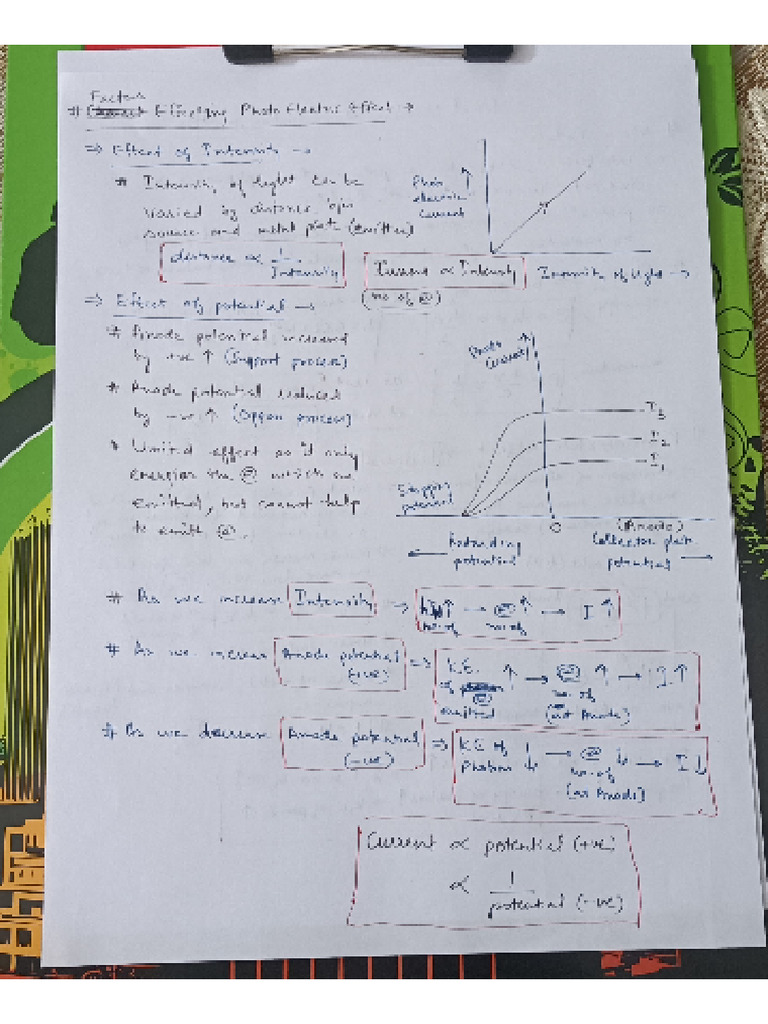 Factors
# Effecting Photo Electric Effect →
⇒ Effect of Intensity →
* Intensity of light can be
varied by distance b/w
source and metal plate (Emitter)
distance ∝ 1/Intensity
Current ∝ Intensity
(no. of e)
Photo
electric
current
Intensity of light →
⇒ Effect of potential →
* Anode potential increased
by +ve ↑ (Support process)
* Anode potential reduced
by -ve ↑ (Oppose process)
* Limited effect as it only
energise the e which are
emitted, but cannot help
to emit e.
Photo
current
I3
I2
I1
Stopping
potential
O
(Anode)
Collector plate
potential →
← Retarding
potential
# As we increase Intensity ⇒ ↑ → e ↑ → I ↑
no. of no. of
# As we increase Anode potential (+ve) ⇒ K.E. ↑ → e ↑ → I ↑
of e emitted
no. of
(at Anode)
# As we decrease Anode potential (-ve) ⇒ K.E of photon ↓ → e ↓ → I ↓
no. of
(at Anode)
Current ∝ potential (+ve)
∝ 1/potential (-ve)